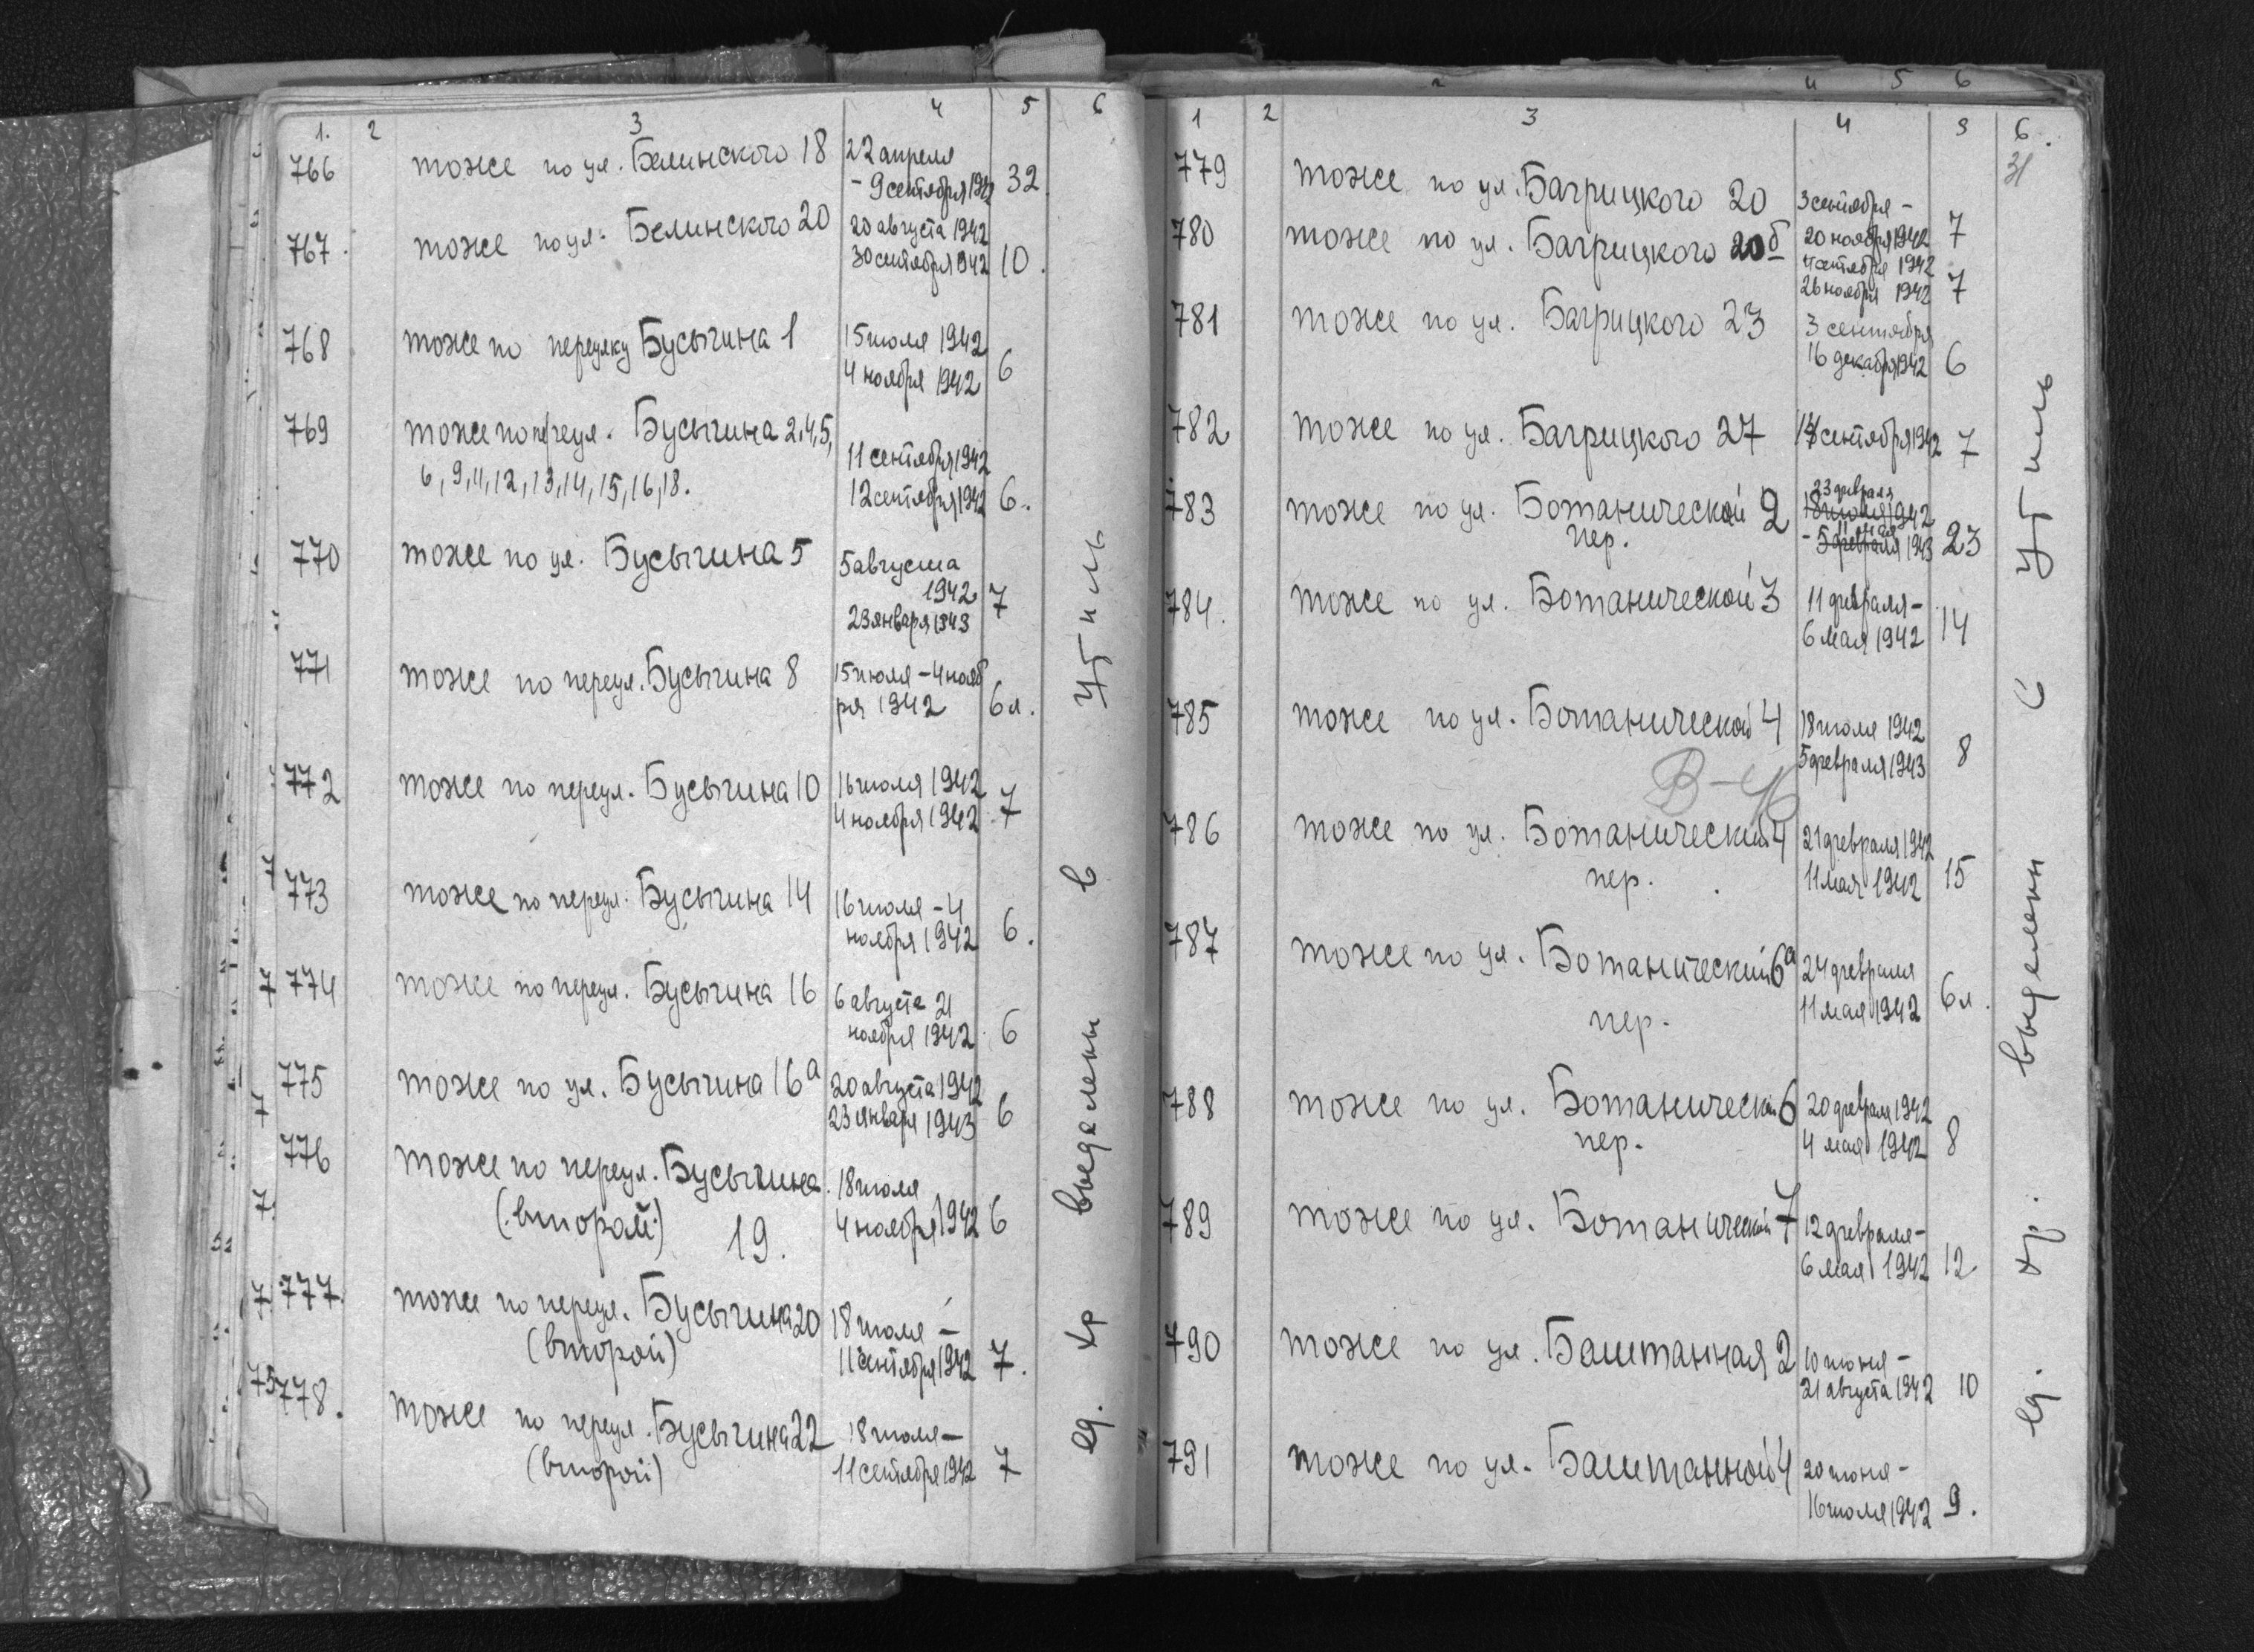 1. 2 3 4 5 6
766 тоже по ул. Белинского 18 22 апреля
- 9 сентября 1942 32.
767. тоже по ул. Белинского 20 20 августа 1942
30 сентября 1942 10.
768 тоже по переулку Бусыгина 1 15 июля 1942
4 ноября 1942 6
769 тоже по переул. Бусыгина 2,4,5,
6, 9, 11, 12, 13, 14, 15, 16, 18. 11 сентября 1942
12 сентября 1942 6.
770 тоже по ул. Бусыгина 5 5 августа
1942 7
23 января 1943
771 тоже по переул. Бусыгина 8 15 июля - 4 нояб
ря 1942 6 л.
772 тоже по переул. Бусыгина 10 16 июля 1942
4 ноября 1942 7
773 тоже по переул. Бусыгина 14 16 июля - 4
ноября 1942 6.
774 тоже по переул. Бусыгина 16 6 августа 21
ноября 1942 6
775 тоже по ул. Бусыгина 16а 20 августа 1942
23 января 1943 6
776 тоже по переул. Бусыгина 18 июля
(второй) 19. 4 ноября 1942 6
777. тоже по переул. Бусыгина 20 18 июля -
(второй) 11 сентября 1942 7.
778. тоже по переул. Бусыгина 22 18 июля -
(второй) 11 сентября 1942 7
ед. хр выделены в утиль
1 2 3 4 5 6.
31
779 тоже по ул. Багрицкого 20 3 сентября -
20 ноября 1942 7
780 тоже по ул. Багрицкого 20б
4 сентября 1942
26 ноября 1942 7
781 тоже по ул. Багрицкого 23 3 сентября
16 декабря 1942 6
782 тоже по ул. Багрицкого 27 сентября 1942 7
783 тоже по ул. Ботанической 2 23 февраля
пер. 18 июля 1942
11 мая
- 5 февраля 1943 23
784. тоже по ул. Ботанической 3 11 февраля -
6 мая 1942 14
785 тоже по ул. Ботанической 4 18 июля 1942
5 февраля 1943 8
786 тоже по ул. Ботанический 4 21 февраля 1942
пер. 11 мая 1942 15
787 тоже по ул. Ботанический 6а 24 февраля
пер. 11 мая 1942 6 л.
788 тоже по ул. Ботанической 6 20 февраля 1942
пер. 4 мая 1942 8
789 тоже по ул. Ботанической 7 12 февраля -
6 мая 1942 12
790 тоже по ул. Баштанная 2 10 июня -
21 августа 1942 10
791 тоже по ул. Баштанной 4 20 июня -
16 июля 1942 9.
ед. хр. выделены в утиль